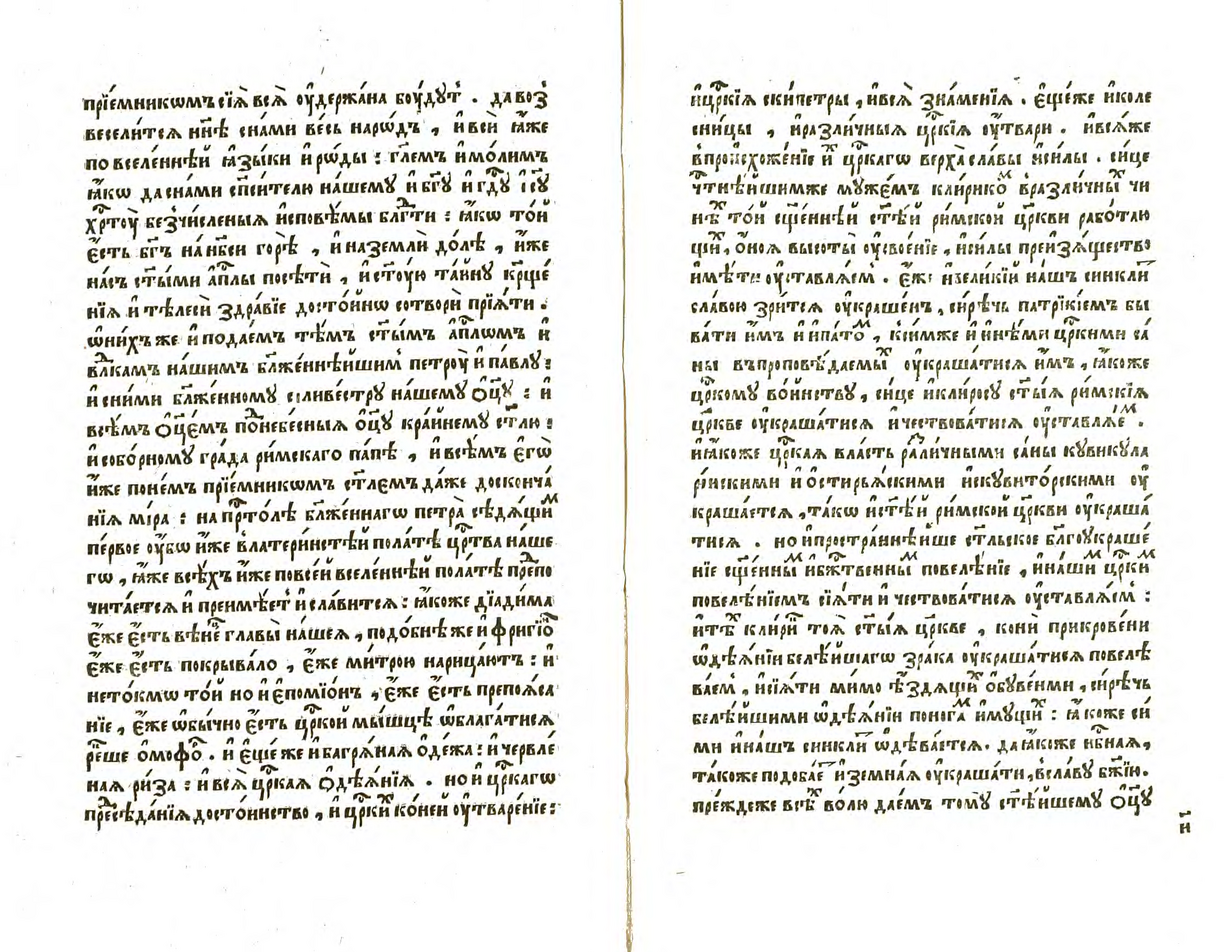 прїе́мникѡмъ сїѧ̀ всѧ̀ оу҆держа́на боу́дут̾ . да воз̾
весели́тсѧ нн҃ѣ сна́ми ве́сь наро́дъ , и҆ всѝ ꙗ҆́же
по вселе́ннѣй ꙗ҆зы́ки и҆ ро́ды : гл҃емъ и҆ мо́лимъ
ꙗ҆́кѡ да сна́ми сп҃си́телю на́шему и҆ бг҃у и҆ гд҃у і҆су
хр҃тоу̀ без̾чи́сленыѧ и҆сповѣ́мы блг҃ти : ꙗ҆́кѡ то́й
є҆́сть бг҃ъ на нб҃си горѣ̀ , и҆ на землѝ до́лѣ , и҆́же
на́съ ст҃ы́ми а҆пл҃ы посѣтѝ , и҆ ст҃о́ую та́йну кр҃ще́
нїѧ и҆ тѣлесѝ здра́вїе досто́йнѡ сотворѝ прїѧ́ти .
ѡ҆ни́хъ же и҆ подае́мъ тѣ́мъ ст҃ы́мъ а҆пл҃ѡмъ и҆
вл҃камъ на́шимъ бл҃же́ннѣйшим̾ петроу̀ и҆ па́влу :
и҆ сни́ми бл҃же́нному силиве́стру на́шему ѻ҆ц҃у : и҆
всѣ́мъ ѻ҆ц҃е́мъ поⷣнебесныѧ ѻ҆ц҃у кра́йнему ст҃лю :
и҆ собо́рному гра́да ри́мскаго па́пѣ , и҆ всѣ́мъ є҆гѡ̀
и҆́же поне́мъ прїе́мникѡмъ ст҃лемъ да́же досконча́
нїѧ мі́ра : на прⷭ҇то́лѣ бл҃же́ннагѡ петра̀ сѣдѧ́щиⷨ
пе́рвое оу҆́бѡ и҆́же в̾латери́нстѣй пола́тѣ цр҃тва на́ше
гѡ , ꙗ҆́же всѣ́хъ и҆́же повсе́й вселе́ннѣй пола́тѣ преⷣпо
чита́етсѧ и҆ преимѣ́ет̾ и҆ сла́витсѧ : ꙗ҆́коже дїади́ма
є҆́же є҆́сть вѣне́ц̾ главы̀ на́шеѧ , подо́бнѣ же и҆ фригїоⷩ
є҆́же є҆́сть покрыва́ло , є҆́же ми́трою нарица́ютъ : и҆
нето́кмѡ то́й но и҆ є҆помїо́нъ , є҆́же є҆́сть препоѧ́са
нїе , є҆́же ѡ҆бы́чно є҆́сть цр҃кой мы́шцѣ ѡ҆блага́тисѧ
ре́кше ѻ҆мофоⷬ . и҆ є҆ще́ же и҆ багрѧ́наѧ ѻ҆де́жа : и҆ червле́
наѧ ри́за : и҆ всѧ̀ цр҃каѧ ѻ҆дѣѧ́нїѧ . но и҆ цр҃кагѡ
пресѣда́нїѧ досто́инство , и҆ цр҃киⷯ ко́ней оу҆тваре́нїе :
и҆ цр҃кїѧ ски́петры , и҆ всѧ̀ зна́менїѧ . є҆ще́ же и҆ коле
сни́цы , и҆ разли́чныѧ цр҃кїѧ оу҆́твари . и҆ всѧ́же
в̾происхожде́нїе и҆ цр҃кагѡ верха̀ сла́вы и҆ си́лы . си́це
чтⷭ҇нѣ́йшимже муже́мъ кли́рикоⷨ в̾разли́чныⷯ чи
нѣⷯ то́й сщ҃е́ннѣй ст҃ѣ́й ри́мской цр҃кви рабо́таю
щиⷨ , ѻ҆́ноѧ высоты̀ оу҆своє́нїе , и҆ си́лы преизѧ́щество
и҆мѣ́ти оу҆ставлѧ́ем̾ . є҆́же и҆ вели́кїй на́шъ синклиⷮ
сла́вою зри́тсѧ оу҆краше́нъ , си́рѣчь патрі́кїемъ бы
ва́ти и҆́мъ и҆ и҆пато́ⷨ , ксимже и҆ и҆нѣ́ми цр҃кими са́
ны въпроповѣ́даемыⷯ оу҆краша́тисѧ и҆́мъ , ꙗ҆́коже
цр҃кому во́инству , си́це и҆ кли́росу ст҃ы́ѧ ри́мскїѧ
цр҃кве оу҆краша́тисѧ и҆ че́ствоватисѧ оу҆ставлѧ́еⷨ .
и҆ ꙗ҆́коже цр҃каѧ вла́сть разли́чными са́ны кувикула
рі́искими и҆ остирьѧ́скими и҆скувито́рскими оу҆
краша́етсѧ , та́кѡ и҆ ст҃ѣ́й ри́мской цр҃кви оу҆краша́
тисѧ . но и҆ простра́ннѣише ст҃льское бл҃гоукраше́
нїе сщ҃е́нныⷨ и҆ бжⷭ҇твенныⷨ повелѣ́нїе , и҆ на́шиⷨ цр҃киⷨ
повелѣ́нїемъ сїѧ́ти и҆ че́ствоватисѧ оу҆ставлѧ́ем̾ :
и҆ тѣⷯ кли́риⷦ тоѧ̀ ст҃ы́ѧ цр҃кве , ко́ни прикрове́ни
ѡ҆дѣѧ́нїи бѣлѣ́йшагѡ зра́ка оу҆краша́тисѧ повелѣ
ва́ем̾ , и҆ сїѧ́ти ми́мо ѣ҆́здѧщиⷯ ѻ҆бувє́нми , си́рѣчь
бѣлѣ́йшими ѡ҆дѣѧ́нїи понога́ⷨ и҆му́щиⷨ : ꙗ҆́коже си́
ми и҆ на́шъ синкли́ⷮ ѡ҆дѣва́етсѧ . да ꙗ҆́коже нб҃наѧ ,
та́коже подоба́еⷮ и҆ земна́ѧ оу҆краша́ти , в̾сла́ву бж҃їю .
пре́ждеже всѣⷯ во́лю дае́мъ тому̀ ст҃ѣ́йшему ѻ҆ц҃у
н҃